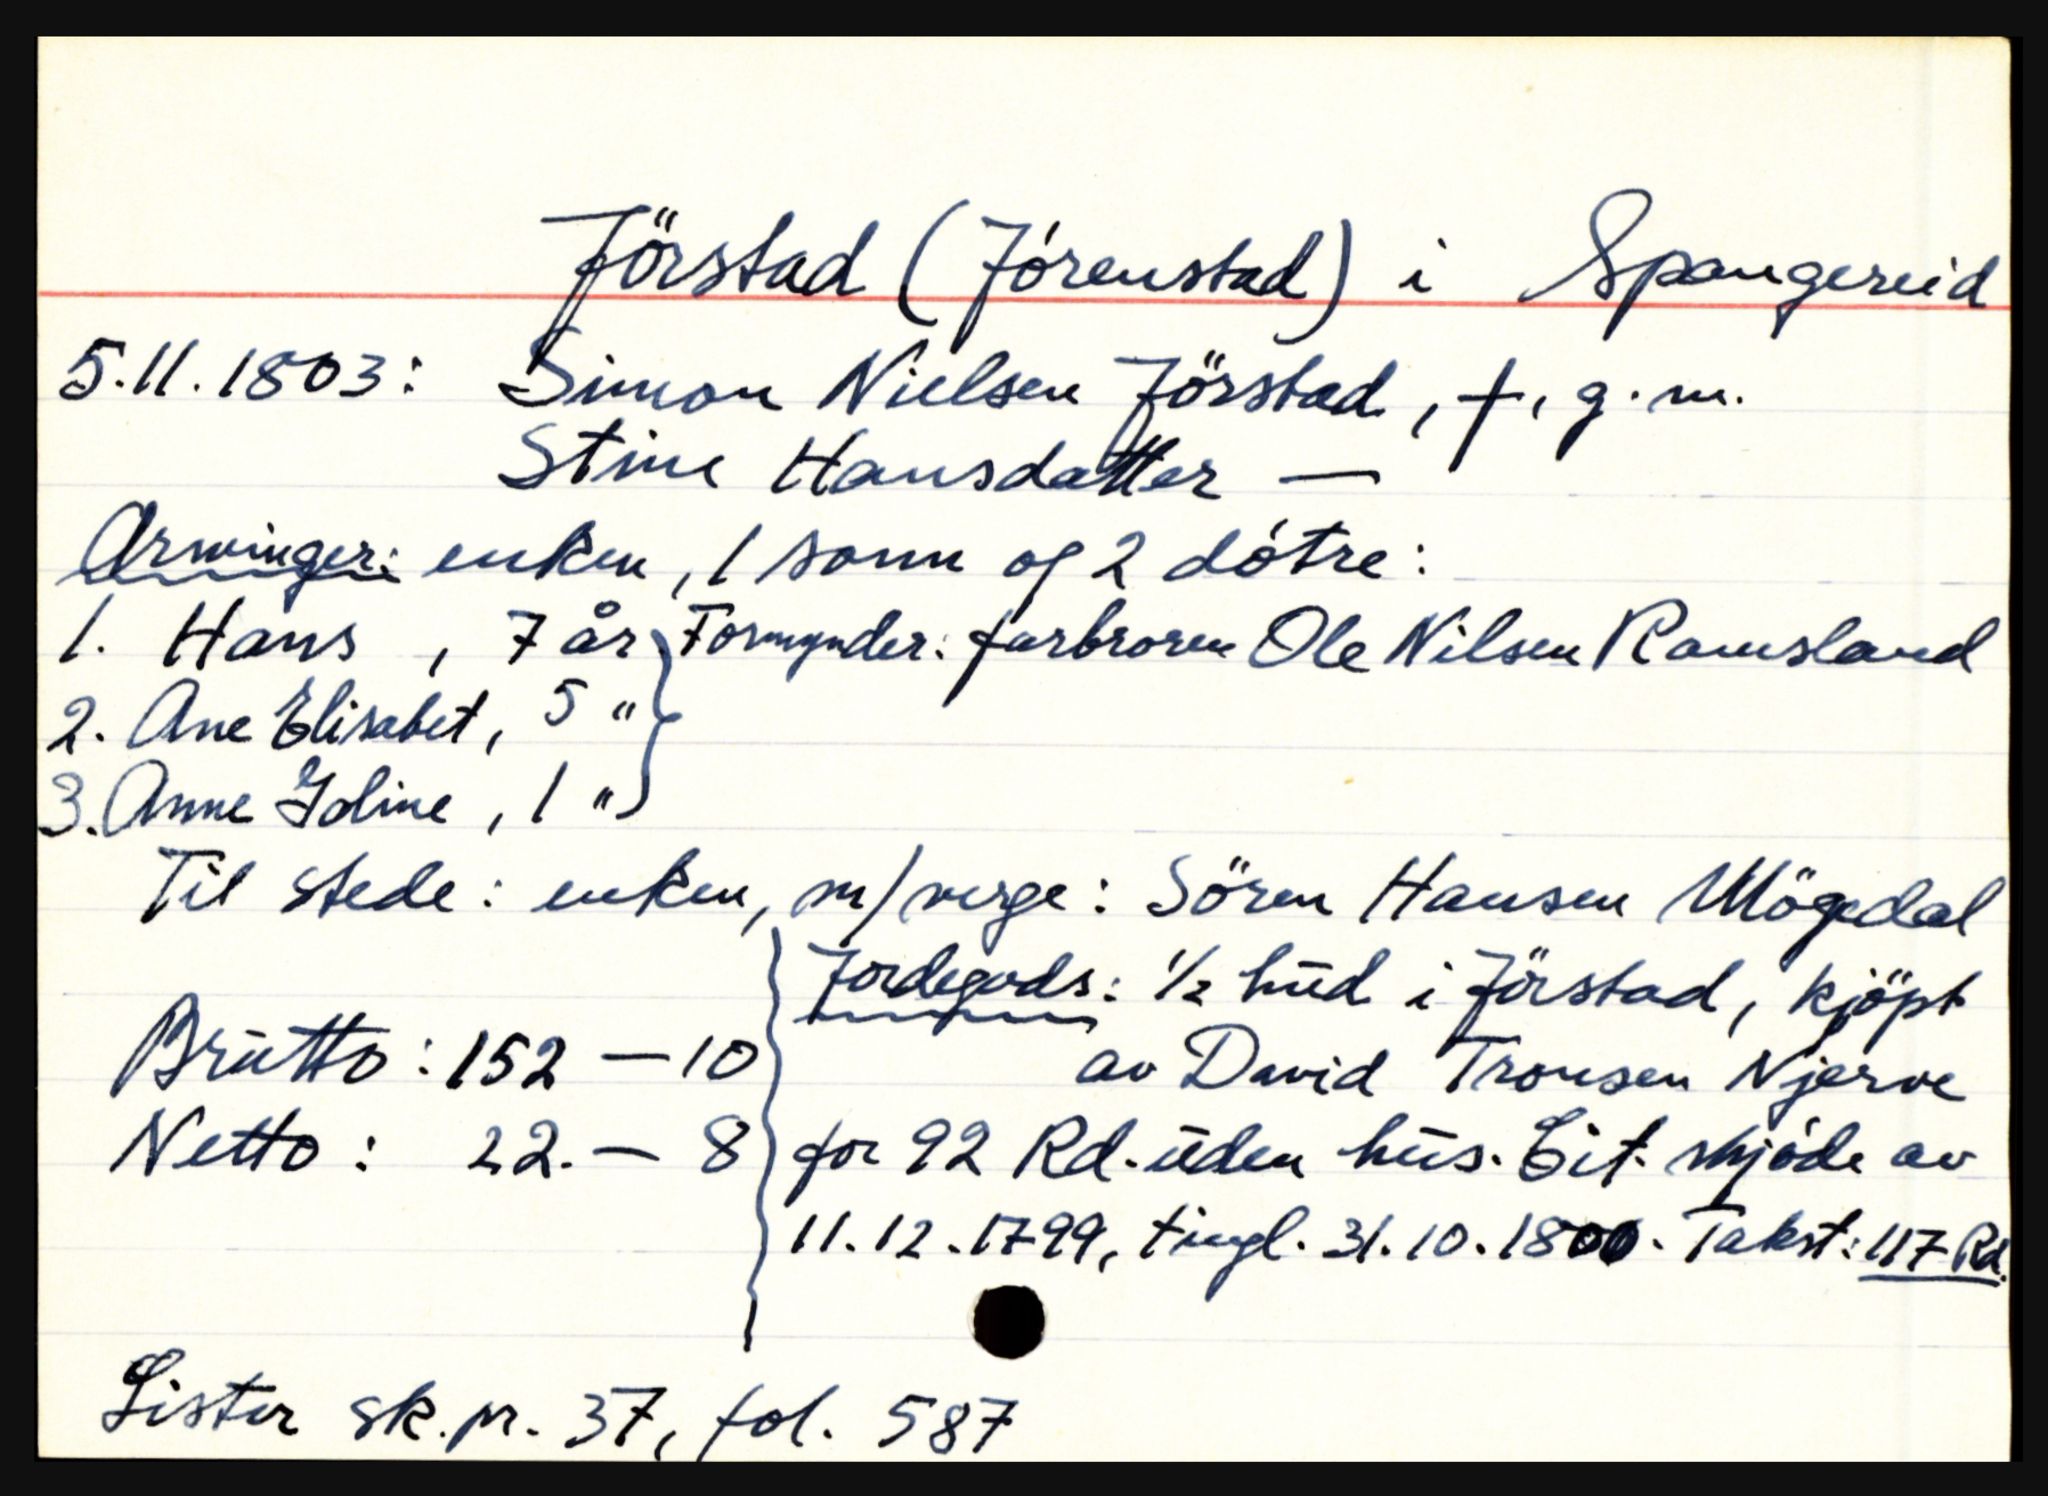 Jörstad (Jórenstad) i Spangereid
5.11.1803: Simon Nielsen Jörstad, †, g.m.
Stine Hansdatter —
Arvinger: enken, 1 sønn og 2 dótre:
1. Hans, 7 år } Formynder: farbroren Ole Nilsen Ramsland
2. Ane Elisabet, 5 "
3. Anne Joline, 1 "
Til stede: enken, m/verge: Sören Hansen Mögedal
Jordegods: ½ hud i Jörstad, kjöpt
Brutto: 152 — 10 av David Tronsen Njerve
Netto: 22. — 8 for 92 Rd. uden hus. Cit. skjóde av
11.12.1799, tingl. 31.10.1800. Takst: 117 Rd.
Lister sk.pr. 37, fol. 587